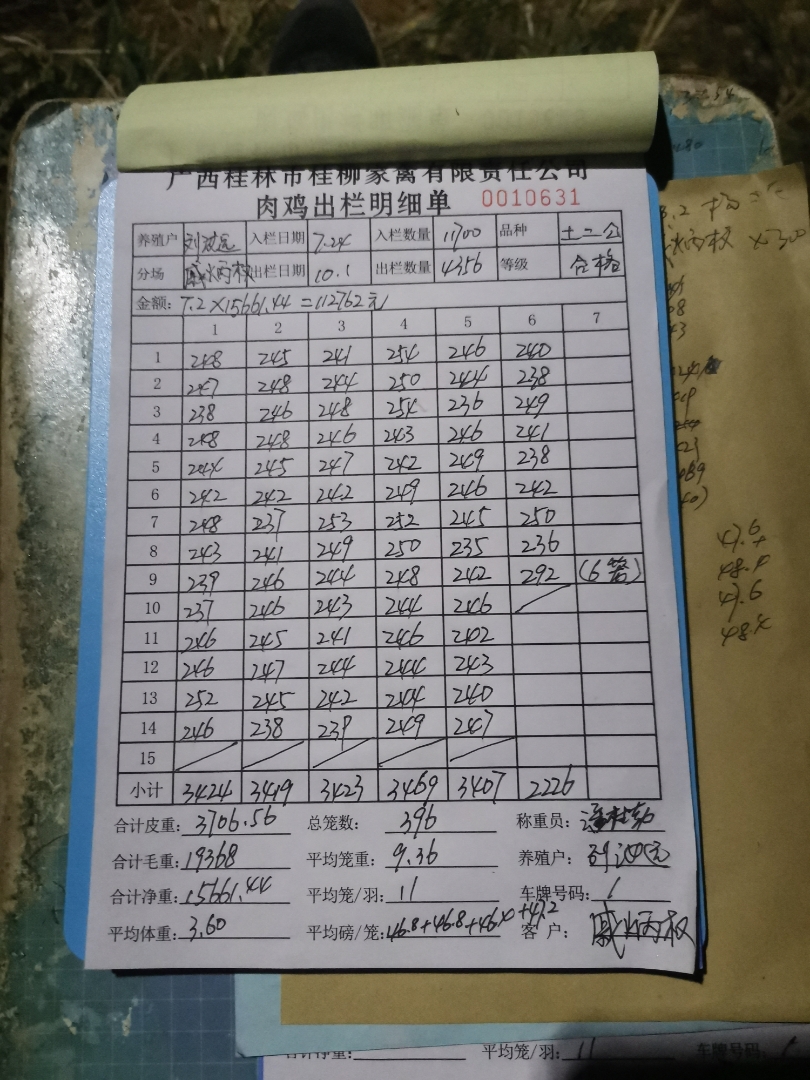 广西桂林市桂柳家禽有限责任公司
肉鸡出栏明细单 0010631
养殖户 入栏日期 7.24 入栏数量 11700 品种 土二公
分场 出栏日期 10.1 出栏数量 4356 等级 合格
金额: 7.2×15661.44=112762元
1 2 3 4 5 6 7
1 248 245 241 254 246 240
2 247 248 244 250 244 238
3 238 246 248 254 236 249
4 248 248 246 243 246 241
5 244 245 247 242 249 238
6 242 242 242 249 246 242
7 248 237 253 252 245 250
8 243 241 249 250 235 236
9 239 246 244 248 242 292 (6笼)
10 237 246 243 244 246
11 246 245 241 246 242
12 246 247 244 244 243
13 252 245 242 244 240
14 246 238 239 249 247
15
小计 3424 3419 3423 3469 3407 2226
合计皮重: 3706.56 总笼数: 396 称重员:
合计毛重: 19368 平均笼重: 9.36 养殖户:
合计净重: 15661.44 平均笼/羽: 11 车牌号码: /
平均体重: 3.60 平均磅/笼: 46.8+46.8+46.4+47.2 客户:
47.6
48.4
47.6
48.4
合计净重: 平均笼/羽: 11 车牌号码: